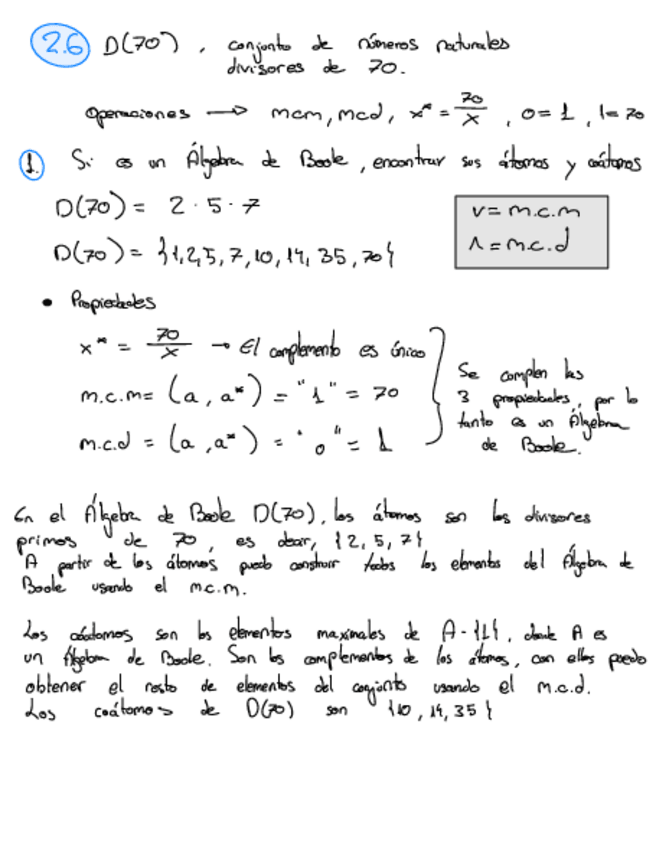 2.6 D(70), conjunto de números naturales
divisores de 70.
Operaciones → mcm, mcd, x* = 70/x, 0=1, 1=70
1. Si es un Álgebra de Boole, encontrar sus átomos y coátomos
D(70) = 2·5·7
D(70) = {1,2,5,7,10,14,35,70}
v = m.c.m
Λ = m.c.d
• Propiedades
x* = 70/x → El complemento es único
m.c.m = (a, a*) = "1" = 70
m.c.d = (a, a*) = "0" = 1
Se cumplen las
3 propiedades, por lo
tanto es un Álgebra
de Boole.
En el Álgebra de Boole D(70), los átomos son los divisores
primos de 70, es decir, {2, 5, 7}
A partir de los átomos puedo construir todos los elementos del Álgebra de
Boole usando el m.c.m.
Los coátomos son los elementos maximales de A-{1}, donde A es
un Álgebra de Boole. Son los complementos de los átomos, con ellos puedo
obtener el resto de elementos del conjunto usando el m.c.d.
Los coátomos de D(70) son {10, 14, 35}